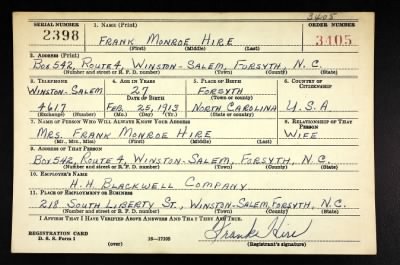 3405
SERIAL NUMBER 1. NAME (Print) ORDER NUMBER
2398 FRANK MONROE HIRE 3405
(First) (Middle) (Last)
2. ADDRESS (Print)
BOX 542, ROUTE 4, WINSTON-SALEM, FORSYTH, N. C.
(Number and street or R. F. D. number) (Town) (County) (State)
3. TELEPHONE 4. AGE IN YEARS 5. PLACE OF BIRTH 6. COUNTRY OF CITIZENSHIP
WINSTON-SALEM 27 FORSYTH
DATE OF BIRTH (Town or county)
4617 FEB. 25, 1913 NORTH CAROLINA U.S.A
(Exchange) (Number) (Mo.) (Day) (Yr.) (State or country)
7. NAME OF PERSON WHO WILL ALWAYS KNOW YOUR ADDRESS 8. RELATIONSHIP OF THAT PERSON
MRS. FRANK MONROE HIRE WIFE
(Mr., Mrs., Miss) (First) (Middle) (Last)
9. ADDRESS OF THAT PERSON
BOX 542, ROUTE 4, WINSTON-SALEM, FORSYTH, N.C.
(Number and street or R. F. D. number) (Town) (County) (State)
10. EMPLOYER'S NAME
H. H. BLACKWELL COMPANY
11. PLACE OF EMPLOYMENT OR BUSINESS
218 SOUTH LIBERTY ST., WINSTON-SALEM, FORSYTH, N.C.
(Number and street or R. F. D. number) (Town) (County) (State)
I AFFIRM THAT I HAVE VERIFIED ABOVE ANSWERS AND THAT THEY ARE TRUE.
REGISTRATION CARD
D. S. S. Form 1 (over) 16—17105
Frank Hire
(Registrant's signature)